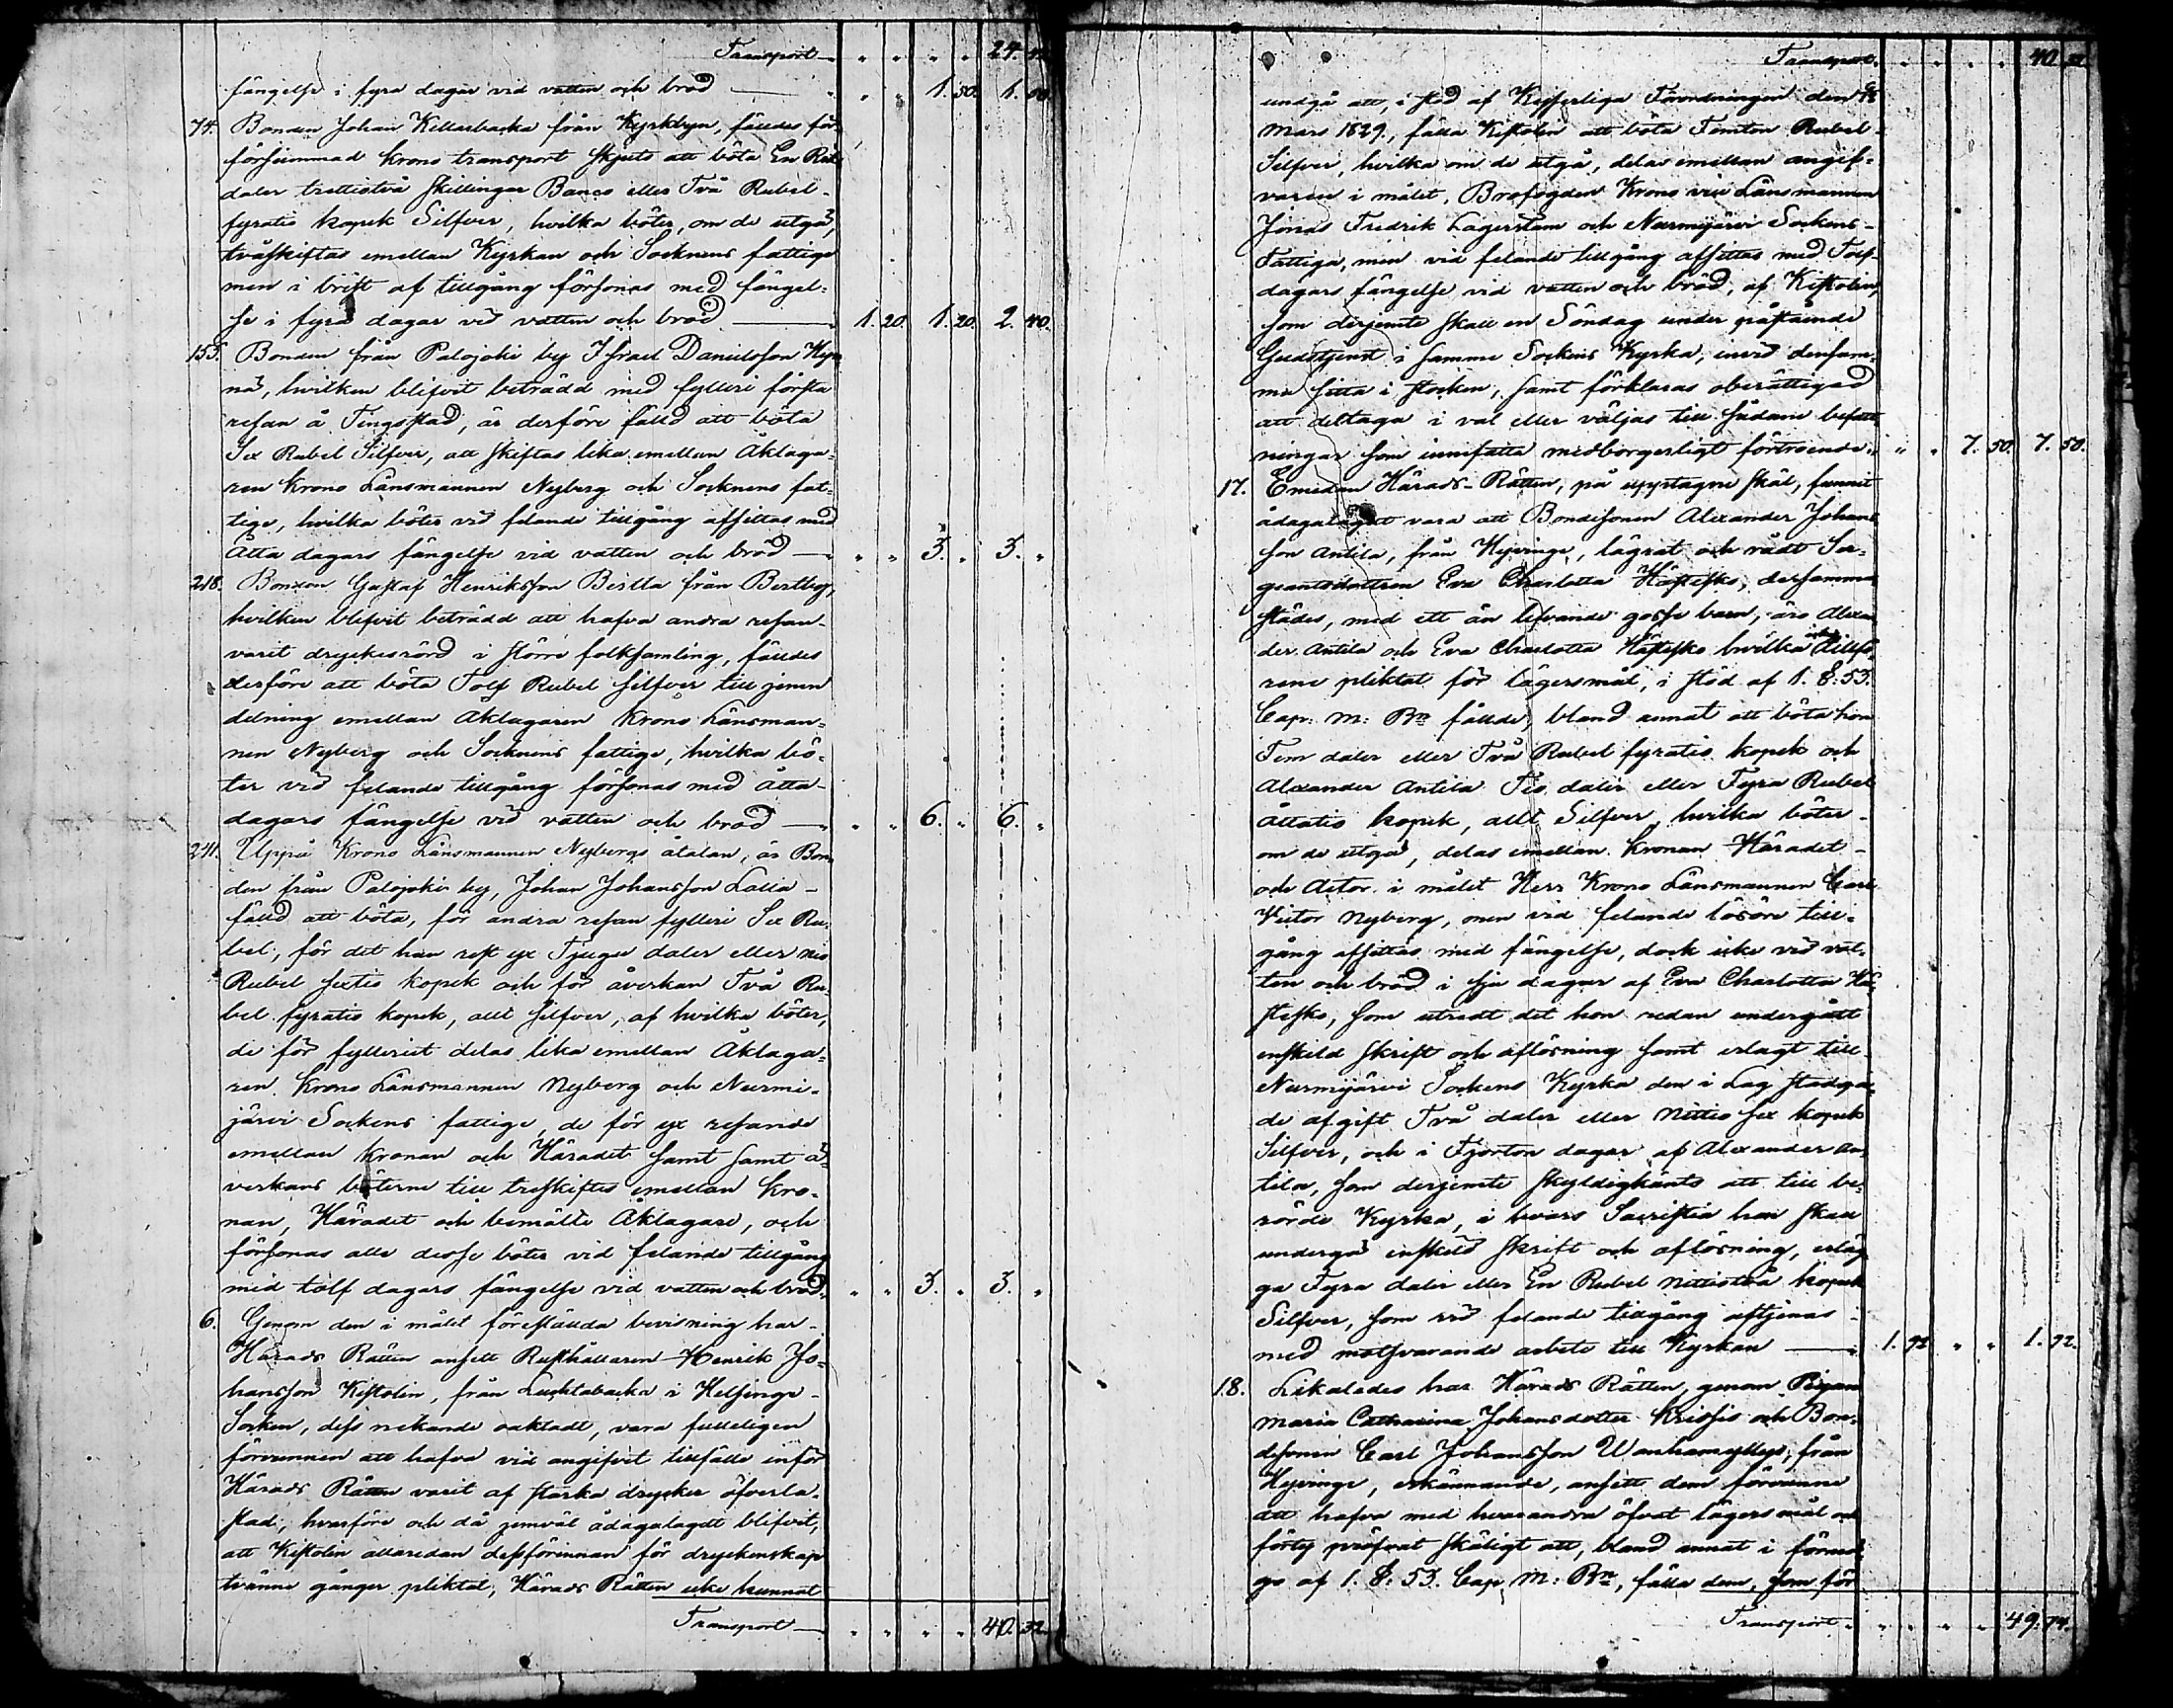 Transport 24. 42
fängelse i fyra dagar vid vatten och bröd 1. 50. 1. 50.
74. Bonden Johan Kellarbacka från Kyrkbyn, fälldes för
försummad krono transport skjuts att böta En Rub
daler trettiotvå skillingar Banco eller Två Rubel
fyratio kopek Silfver, hvilka böter, om de utgå,
tvåskiftas emellan Kyrkan och Socknens fattige
men i brist af tillgång försonas med fängel-
se i fyra dagar vid vatten och bröd 1. 20. 1. 20. 2. 40.
155. Bonden från Palojoki by Israel Danielsson
nä, hvilken blifvit beträdd med fylleri första
resan å Tingsstad, är derföre fälld att böta
Sex Rubel Silfver, att skiftas lika emellan Åklaga-
ren Krono Länsmannen Nyberg och Socknens fat-
tige, hvilka böter vid felande tillgång afsittas med
Åtta dagars fängelse vid vatten och bröd 3. 3.
218. Bonden Gustaf Henriksson Bertla från Bertby,
hvilken blifvit beträdd att hafva andra resan
varit dryckesrörd i större folksamling, fälldes
derföre att böta Tolf Rubel silfver till jemn
delning emellan Åklagaren Krono Länsman-
nen Nyberg och Socknens fattige, hvilka bö-
ter vid felande tillgång försonas med åtta
dagars fängelse vid vatten och bröd 6. 6.
241. Uppå Krono Länsmannen Nybergs åtalan, är Bon-
den från Palojoki by, Johan Johansson Lalla
fälld att böta, för andra resan fylleri Sex Ru-
bel, för det han rest yx Tjugu daler eller nio
Rubel sextio kopek och för åverkan Två Ru-
bel fyratio kopek, allt silfver, af hvilka böter,
de för fylleriet delas lika emellan Åklaga-
ren Krono Länsmannen Nyberg och Nurmi-
järvi Sockens fattige, de för yx resande
emellan kronan och Häradet samt samt å-
verkans böterne till treskiftes emellan kro-
nan, Häradet och bemälte Åklagare, och
försonas alla desse böter vid felande tillgång
med tolf dagars fängelse vid vatten och bröd. 3. 3.
6. Genom den i målet föreställda bevisning har
Härads Rätten ansett Rusthållaren Henrik Jo-
hansson Kistolin, från Lucktabacka i Helsinge
Socken, dess nekande oaktadt, vara fulleligen
förvunnen att hafva vid angifvet tillfälle inför
Härads Rätten varit af starka drycker öfverla-
stad, hvarföre och då jemväl ådagalagdt blifvit,
att Kistolin allaredan dessförinnan för dryckenskap
tvänne gånger pliktat, Härads Rätten icke kunnat
Transport 40. 32.
Transport 40. 32
undgå att, i stöd af Kejserliga Förordningen den
Mars 1829, fälla Kistolin att böta Femton Rubel
Silfver, hvilka om de utgå, delas emellan angif-
varen i målet, Brofogden Krono vice Länsmannen
Jonas Fredrik Lagerstam och Nurmijärvi Sockens
Fattiga, men vid felande tillgång afsittas med Tolf
dagars fängelse vid vatten och bröd, af Kistolin,
som derjemte skall en Söndag under påstående
Gudstjenst i samme Sockens Kyrka, invid densam-
ma sitta i stocken, samt förklaras oberättigad
att deltaga i val eller väljas till sådane befatt-
ningar som innefatta medborgerligt förtroende. 7. 50. 7. 50.
17. Emedan Härads-Rätten, på upptagne skäl, funnit
ådagalagdt vara att Bondesonen Alexander Johans-
son Antila, från Hyvinge, lägrat och rådt Ser-
geantsdottren Eva Charlotta Hästesko, dersamma-
städes, med ett än lefvande gosse barn, äro Alexan-
der Antila och Eva Charlotta Hästesko hvilka icke tillfö-
rene pliktat för lägersmål, i stöd af 1. §. 53.
Cap: M: Bn fällde, bland annat att böta hon
Fem daler eller Två Rubel fyratio kopek och
Alexander Antila Tio daler eller Fyra Rubel
åttatio kopek, allt Silfver, hvilka böter
om de utgå, delas emellan kronan Häradet
och Actor i målet Herr Krono Länsmannen Carl
Victor Nyberg, men vid felande lösöre till-
gång afsittas med fängelse, dock icke vid vat-
ten och bröd i sju dagar af Eva Charlotta Hä-
stesko, som utredt det hon redan undergått
enskild skrift och aflösning samt erlagt till
Nurmijärvi Sockens Kyrka den i Lag stadga-
de afgift Två daler eller Nittio sex kopek
Silfver, och i Fjorton dagar af Alexander An-
tila, som derjemte skyldigkänts att till be-
rörde Kyrka, i hvars Sacristia han skall
undergå enskild skrift och aflösning, erläg-
ga Fyra daler eller En Rubel nittiotvå kopek
Silfver, som vid felande tillgång aftjenas
med motsvarande arbete till Kyrkan 1. 92 1. 92.
18. Likaledes har Härads Rätten, genom Pigan
Maria Catharina Johansdotter Krissis och Bon-
desonen Carl Johansson Wanhamyllys, från
Hyvinge, erkännande, ansett dem förvunne
att hafva med hvarandra öfvat lägersmål och
förty pröfvat skäligt att, bland annat i förmå-
go af 1. §. 53. Cap. M: Bn, fälla dem, som för
Transport 49. 74.